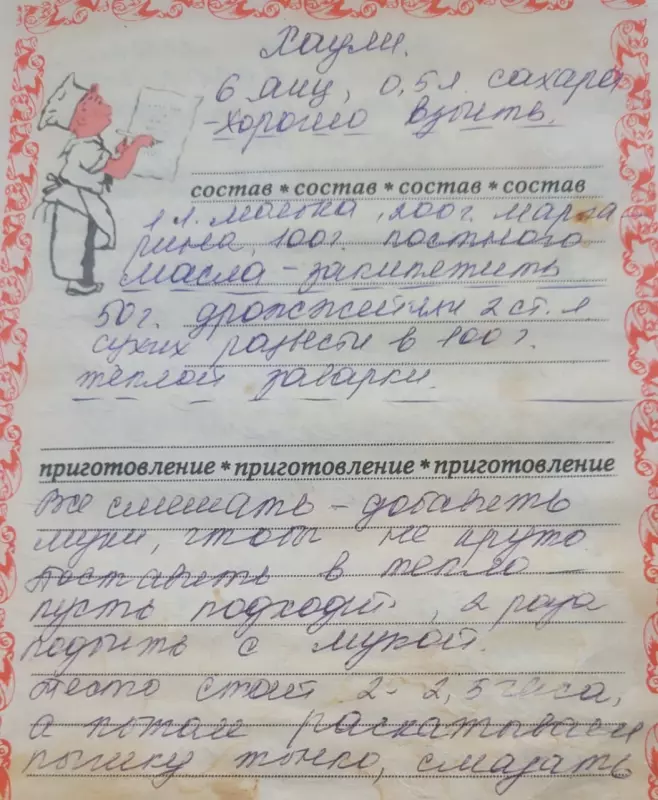 Хаули.
6 яиц, 0,5 л. сахара
-хорошо взбить.
состав * состав * состав * состав
1 л. молока, 200 г. марга
рина, 100 г. постного
масла - закипятить
50 г. дрожжей или 2 ст. л
сухих развести в 100 г.
теплой заварки.
приготовление * приготовление * приготовление
Все смешать - добавить
муки, чтобы не круто
поставить в тепло -
пусть подходит, 2 раза
подбить с мукой.
Тесто стоит 2 - 2,5 часа,
а потом раскатываем
пышку тонко, смазать